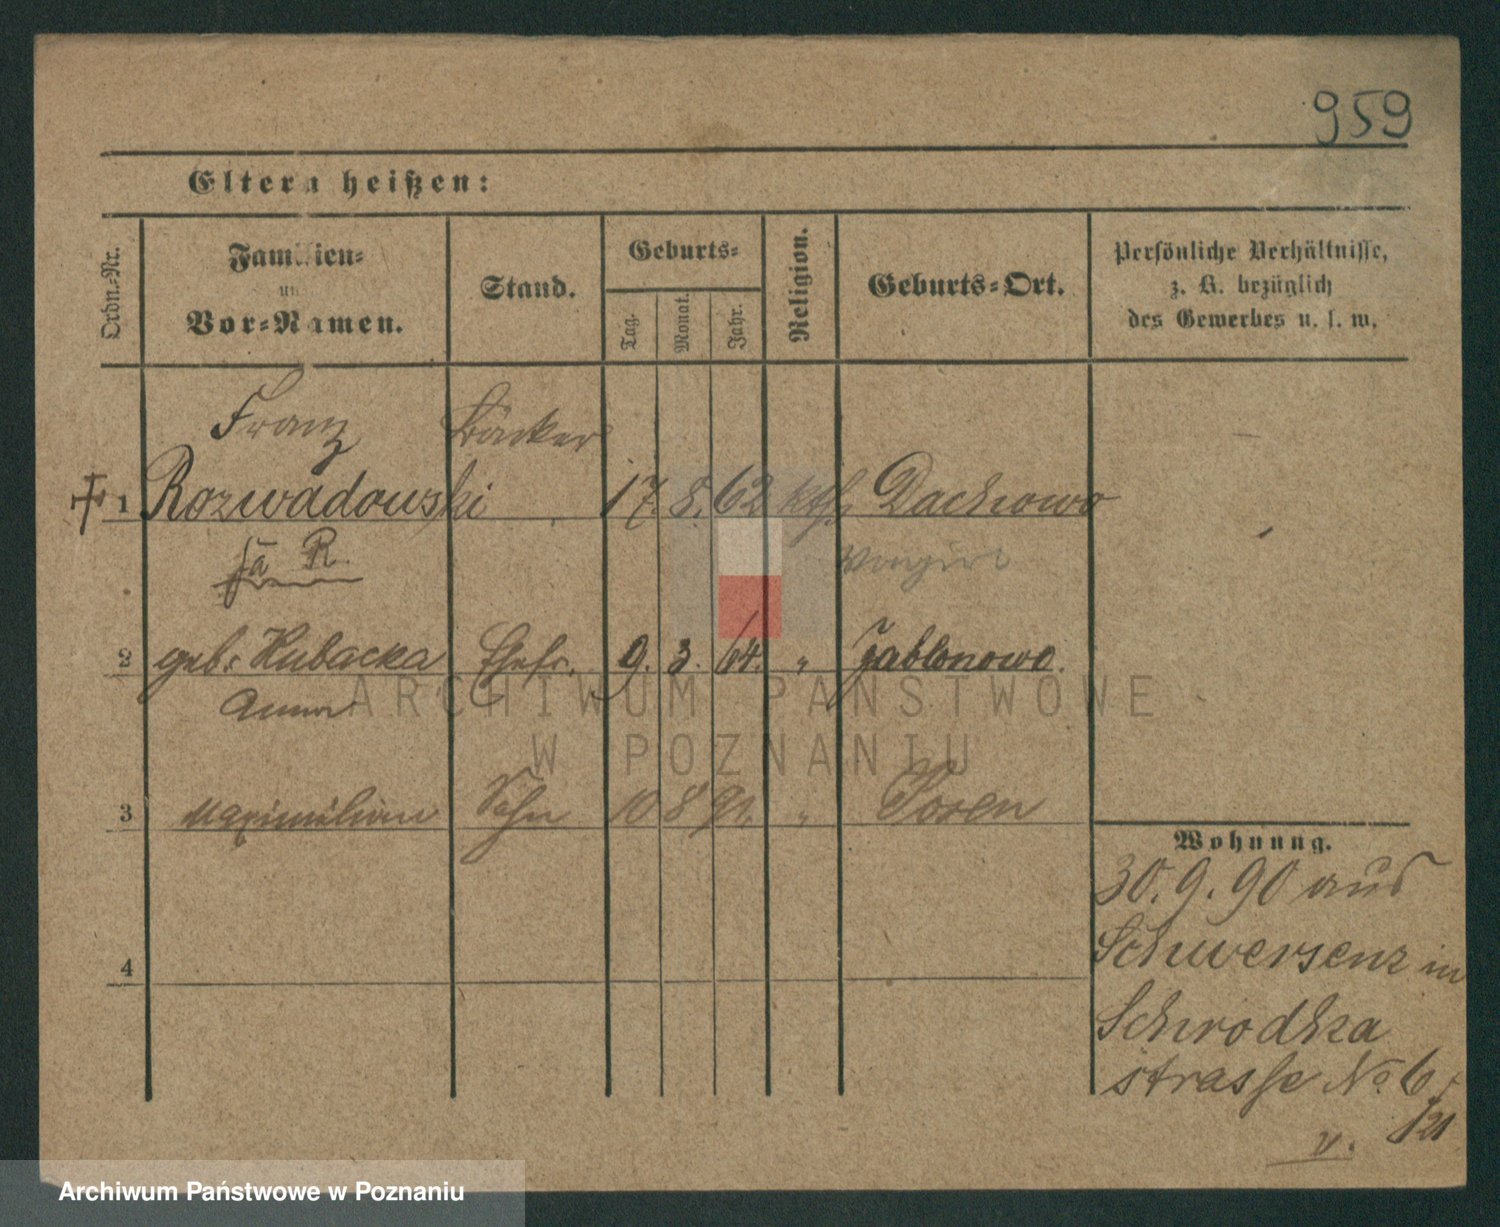 959
Eltern heißen:
Ordn.-Nr.
Familien-
und
Vor-Namen.
Stand.
Geburts-
Tag.
Monat.
Jahr.
Religion.
Geburts-Ort.
Persönliche Verhältnisse,
z. B. bezüglich
des Gewerbes u. s. w.
Franz Bäcker
1 Rozwadowski 17. 8. 62 kth. Dachowo
2 geb. Kubacka Ehefr. 9. 3. 64. " Jablonowo.
Anna
3 Maximilian Sohn 10 8 91. " Posen
4
Wohnung.
30. 9. 90 aus
Schwersenz in
Schrodka
strasse No 6
/21
v.
ARCHIWUM PAŃSTWOWE
W POZNANIU
Archiwum Państwowe w Poznaniu